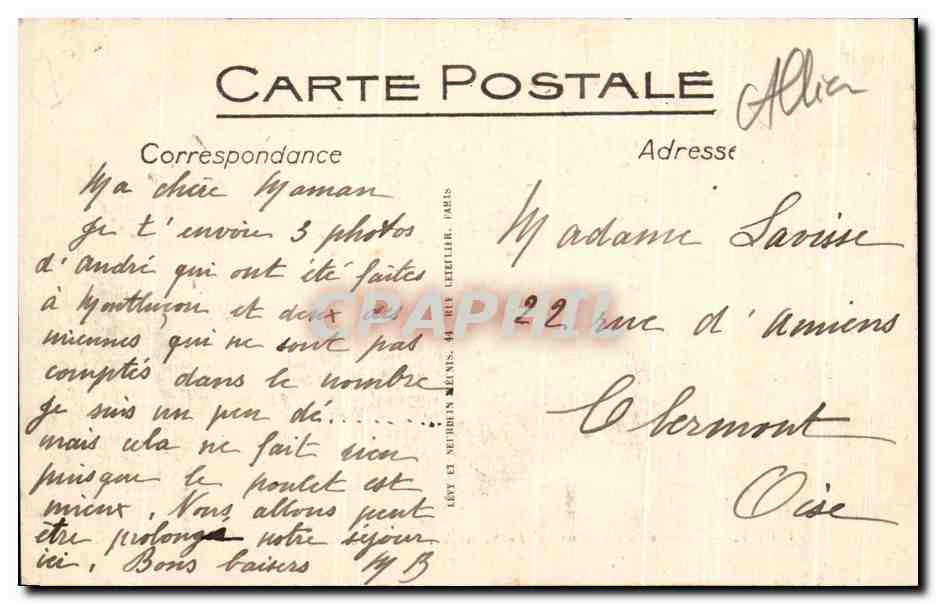 CARTE POSTALE
Allier
Correspondance
Adresse
Ma chère Maman
Je t'envoie 3 photos
d'André qui ont été faites
à Montluçon et deux des
miennes qui ne sont pas
comptés dans le nombre
Je suis un peu dé.........
mais cela ne fait rien
puisque le poulet est
mieux. Nous allons peut
être prolonger notre séjour
ici. Bons baisers MB
LÉVY ET NEURDEIN RÉUNIS, 44, RUE LETELLIER, PARIS
Madame Lavisse
22 rue d'Amiens
Clermont
Oise
CPAPHIL